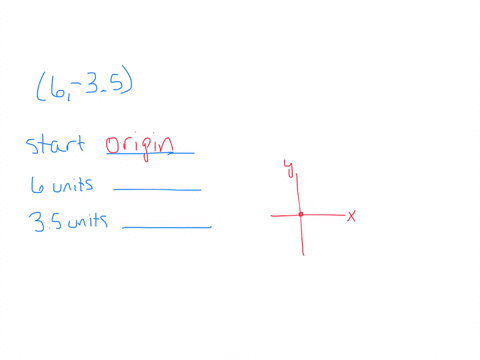 (6, -3.5)
start origin
6 units
3.5 units
y
x